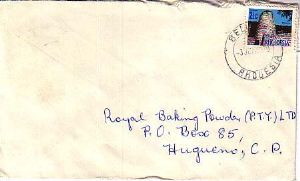 RHODESIA
Royal Baking Powder (PTY) LTD
P.O. Box 85,
Hugueno, C.P.